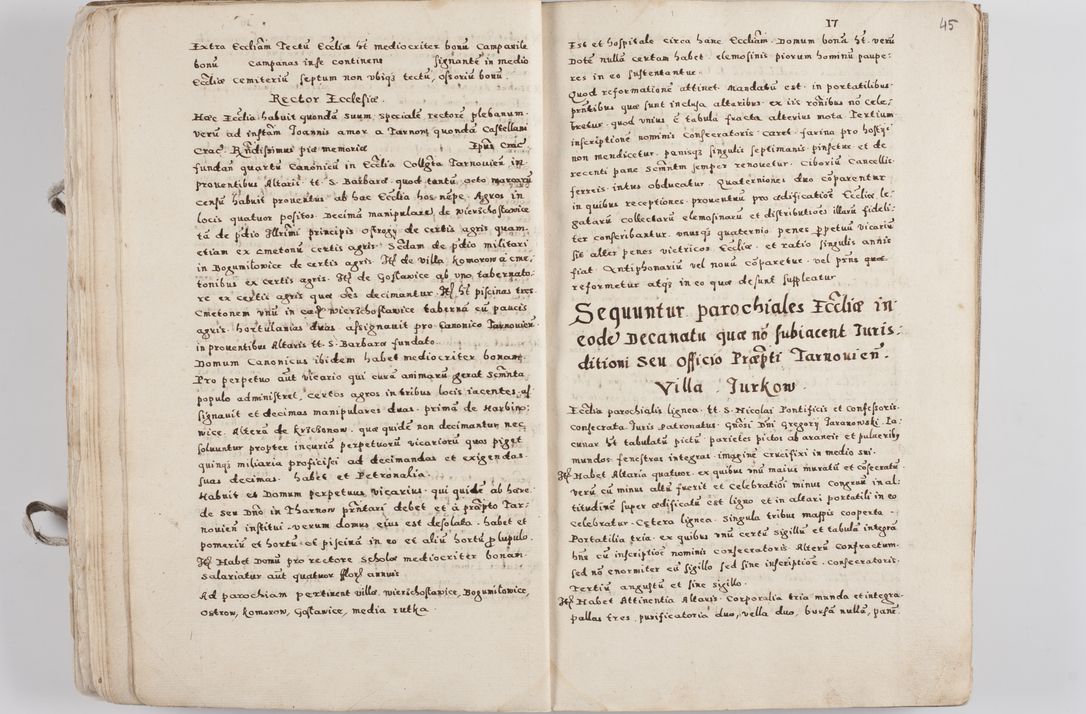 Extra Eccliam Tectu Ecclie ht mediocriter bonu Campanile
bonu campanas in se continens signante in medio
Ecclie cemiteriu septum non ubiq tectu, ossoriu bonu.
Rector Ecclesiae.
Haec Ecclia habuit quonda suum speciale rectore plebanum.
veru ad instam Joannis amor a Tarnow quonda Castellani
Crac. Rndissimus piae memoriae Epus Crac
fundau quartu Canonicu in Ecclia Collgta Tarnovien in
proventibus Altaris tt. S. Barbara quod tantu octo marcaru
censu habuit proventus ab hac Ecclia hos nepe. Agros in
locis quatuor positos. Decima manipulare de Wierzchoslawice
ta de pdio Illrimi principis Ostrogy de certis agris quam
etiam ex cmetonu certis agris. Sadam de pdio militari
in Bogumilowice de certis agris. Itz de villa Komorow a cme,
tonibus ex certis agris. Itz de Goslawice ab uno tabernato,
re ex certis agris qua oes decimantur. Itz ht piscinas tres
Cmetonem unu in wierzchoslawice taberna cu paucis
agris. hortulanias duas assignavit pro Canonico Tarnovien
in proventibus Altaris tt. S. Barbara fundato.
Domum Canonicus ibidem habet mediocriter bonam.
Pro perpetuo aut vicario qui cura animaru gerat Scmnta
populo administret, certos agros in tribus locis iacentes as
signavit et decimas manipulares duas. prima de Harbino
wice. Altera de Krzchonow. quae quide non decimantur nec
solvuntur propter incuria perpetuoru vicarioru quos piget
quinq miliaria proficisci ad decimandas et exigendas
suas decimas. habet et Petronalia.
Habuit et Domum perpetuus vicarius. qui quide ab haere
de seu Dno in Tharnow prntari debet et a praepto Tar,
novien institui. verum domus eius est desolata. habet et
pomeriu et hortu et piscina in eo et aliu hortu p lupulo.
Itz Habet Domu pro rectore Scholae mediocriter bonam
Salariatur aut quatuor flor annuis.
Ad parochiam pertinent villae, wierzchoslawice, Bogumilowice,
Ostrow, Komorow, Goslawice, media rutka.
17
45
Est et hospitale circa hanc Eccliam. Domum bona ht. veru
Dote nulla certam habet. elemosinis piorum hominu paupe,
res in eo sustentantur.
Quod reformatione attinet. Mandatu est. in portatilibus
prntibus quae sunt inclusa altaribus. ex iis ronibus no cele,
bretur. quod unius e tabula fracta alterius mota. Tertium
inscriptione nominis consecratoris. caret. farina pro hostijs
non mendicetur. panisq singulis septimanis pinsetur et de
recenti pane Scmntm semper renovetur. Ciboriu Cancellis
ferreis intus obducatur. Quaterniones duo coparentur
in quibus receptiones proventuu pro aedificatioe Ecclie le,
gataru collectaru elemosinaru et distributioes illaru fideli,
ter conscribantur. unusq quaternio penes perpetuu vicariu
sit alter penes victricos Ecclie. et ratio singulis annis
fiat. Antiphonariu vel novu coparetur. vel prns quae
reformetur atq in eo quae desunt suppleatur.
Sequuntur parochiales Ecclie in
eode Decanatu quae no subiacent Juris,
ditioni seu officio Praepti Tarnovien.
Villa Jurkow.
Ecclia parochialis lignea. tt. S. Nicolai Pontificis et Confessoris.
Consecrata Juris Patronatus. Gnosi Dni Gregory Taranowski. La,
cunar ht tabulatu pictu parietes pictos ab araneis et pulverib
mundos. fenestras integras. imagine Crucifixi in medio sui.
Itz Habet Altaria quatuor. ex quibus unu maius muratu et cosecratu
veru cu minus altu fuerit et Celebratioi minus Congruu in al,
titudine super aedificatu est ligno et in altari portatili in eo
Celebratur. Cetera lignea. Singula tribus mappis cooperta.
Portatilia tria. ex quibus unu certu sigillu et tabula integra
hns cu inscriptioe nominis consecratoris. Alteru Confractum.
sed no enormiter cu sigillo sed sine inscriptioe. consecratoris.
Tertiu angustu et sine sigillo.
Itz Habet Attinentia Altaris. Corporalia tria munda et integra.
pallas tres. purificatoria duo, vella duo, bursa nulla, pane